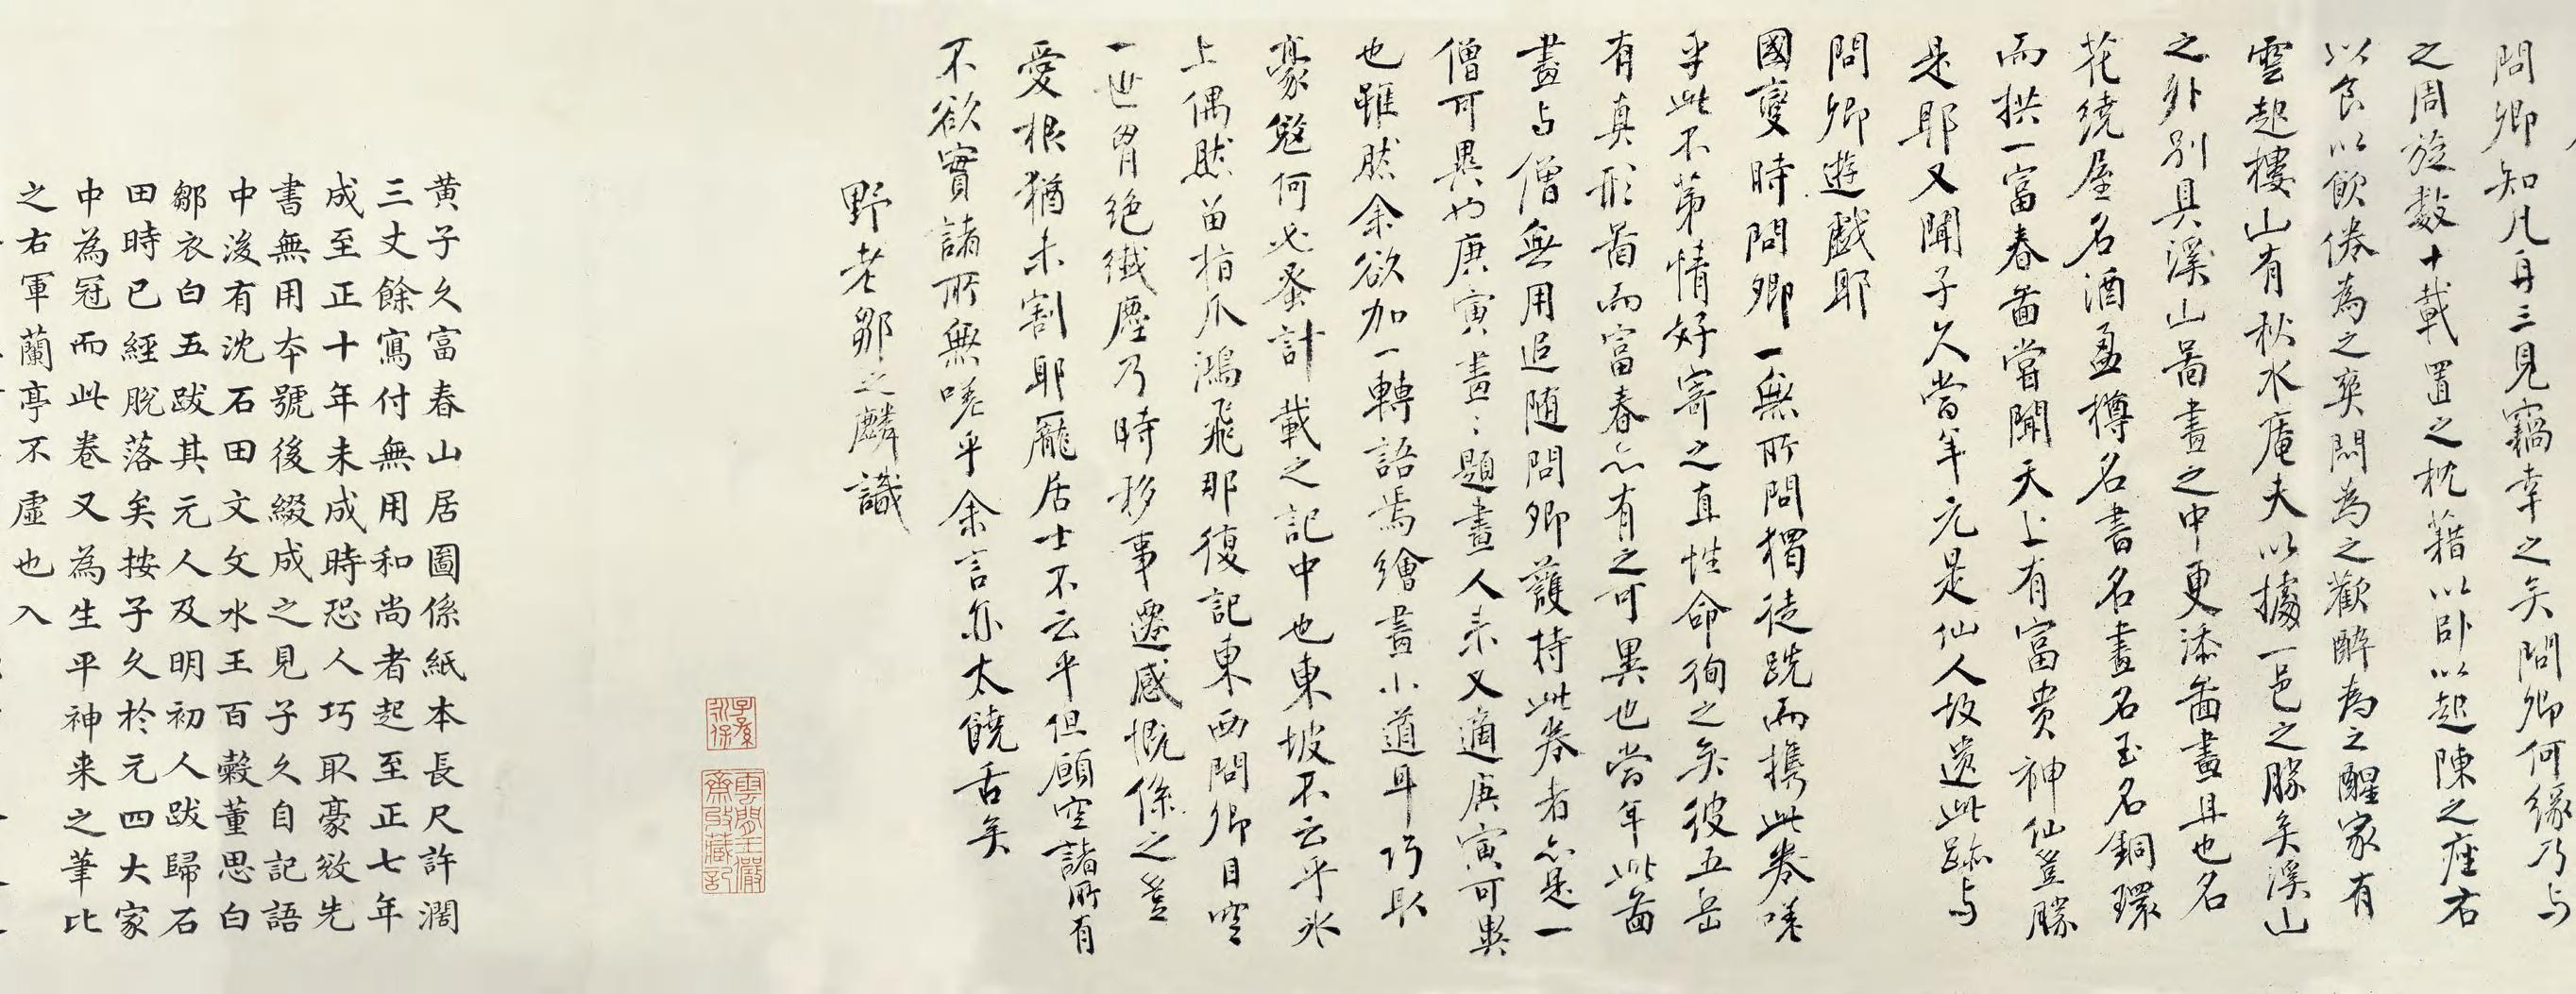 問卿知凡再三見竊幸之矣問卿何緣乃与
之周旋数十載置之枕藉以卧以起陳之座右
以食以飲倦為之爽悶為之歡醉為之醒家有
雲起樓山有秋水庵夫以據一邑之勝矣溪山
之外別具溪山啚畫之中更添啚畫且也名
花繞屋名酒盈樽名書名畫名玉名銅環
而拱一富春啚嘗聞天上有富貴神仙豈勝
是耶又聞子久當年元是仙人故遺此跡与
問卿遊戲耶
國變時問卿一無所問獨徒跣而携此卷嗟
乎此不第情好寄之直性命徇之矣彼五岳
有真形啚而富春亦有之可異也當年此啚
畫与僧無用追随問卿護持此卷者亦是一
僧可異也庚寅畫〻題畫人来又適庚寅可異
也雖然余欲加一轉語焉繪畫小道耳巧取
豪敓何必蚤計載之記中也東坡不云乎氷
上偶然留指爪鴻飛那復記東西問卿目空
一世胷絶纖塵乃時移事遷感慨係之豈
愛根猶未割耶龐居士不云乎但願空諸所有
不欲實諸所無嗟乎余言亦太饒舌矣
野老鄒之麟識
子孫永保
雲間王儼齋收藏記
黄子久富春山居圖係紙本長尺許濶
三丈餘寫付無用和尚者起至正七年
成至正十年未成時恐人巧取豪敓先
書無用夲號後綴成之見子久自記語
中後有沈石田文文水王百榖董思白
鄒衣白五跋其元人及明初人跋歸石
田時已經脫落矣按子久於元四大家
中為冠而此卷又為生平神来之筆比
之右軍蘭亭不虛也入